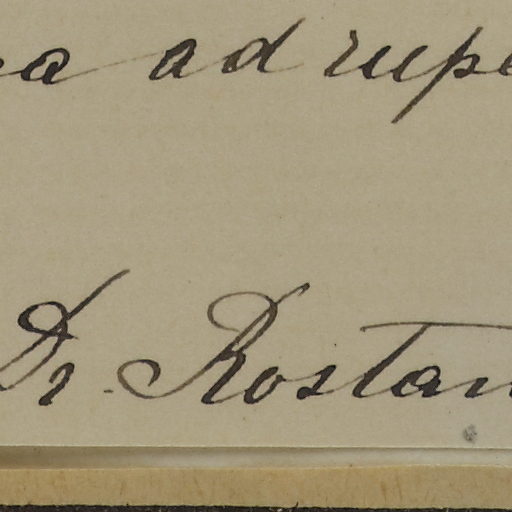 ad rupe
Dr. Rostan